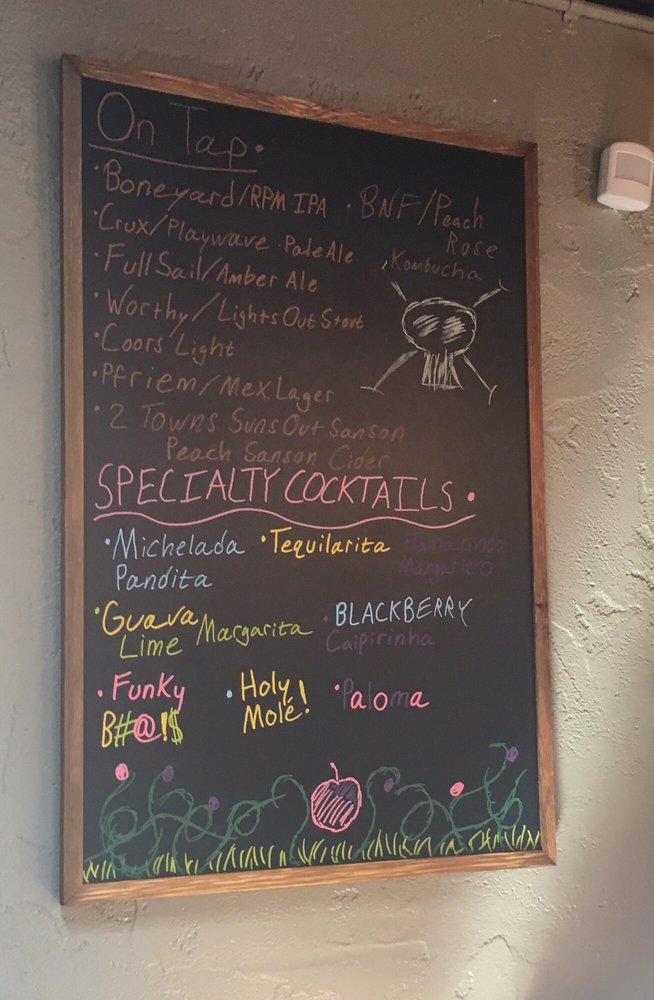 On Tap.
• Boneyard/RPM IPA
• Crux/Playwave Pale Ale
• Full Sail/Amber Ale
• Worthy/Lights Out Stout
• Coors Light
• Pfriem/Mex Lager
• 2 Towns Suns Out Sanson
Peach Sanson Cider
• BNF/Peach
Rose
Kombucha
SPECIALTY COCKTAILS.
• Michelada
Pandita
• Tequilarita
• Tamarindo
Margarito
• Guava
Lime Margarita
• BLACKBERRY
Caipirinha
• Funky
B#@!$
• Holy
Molé!
• Paloma